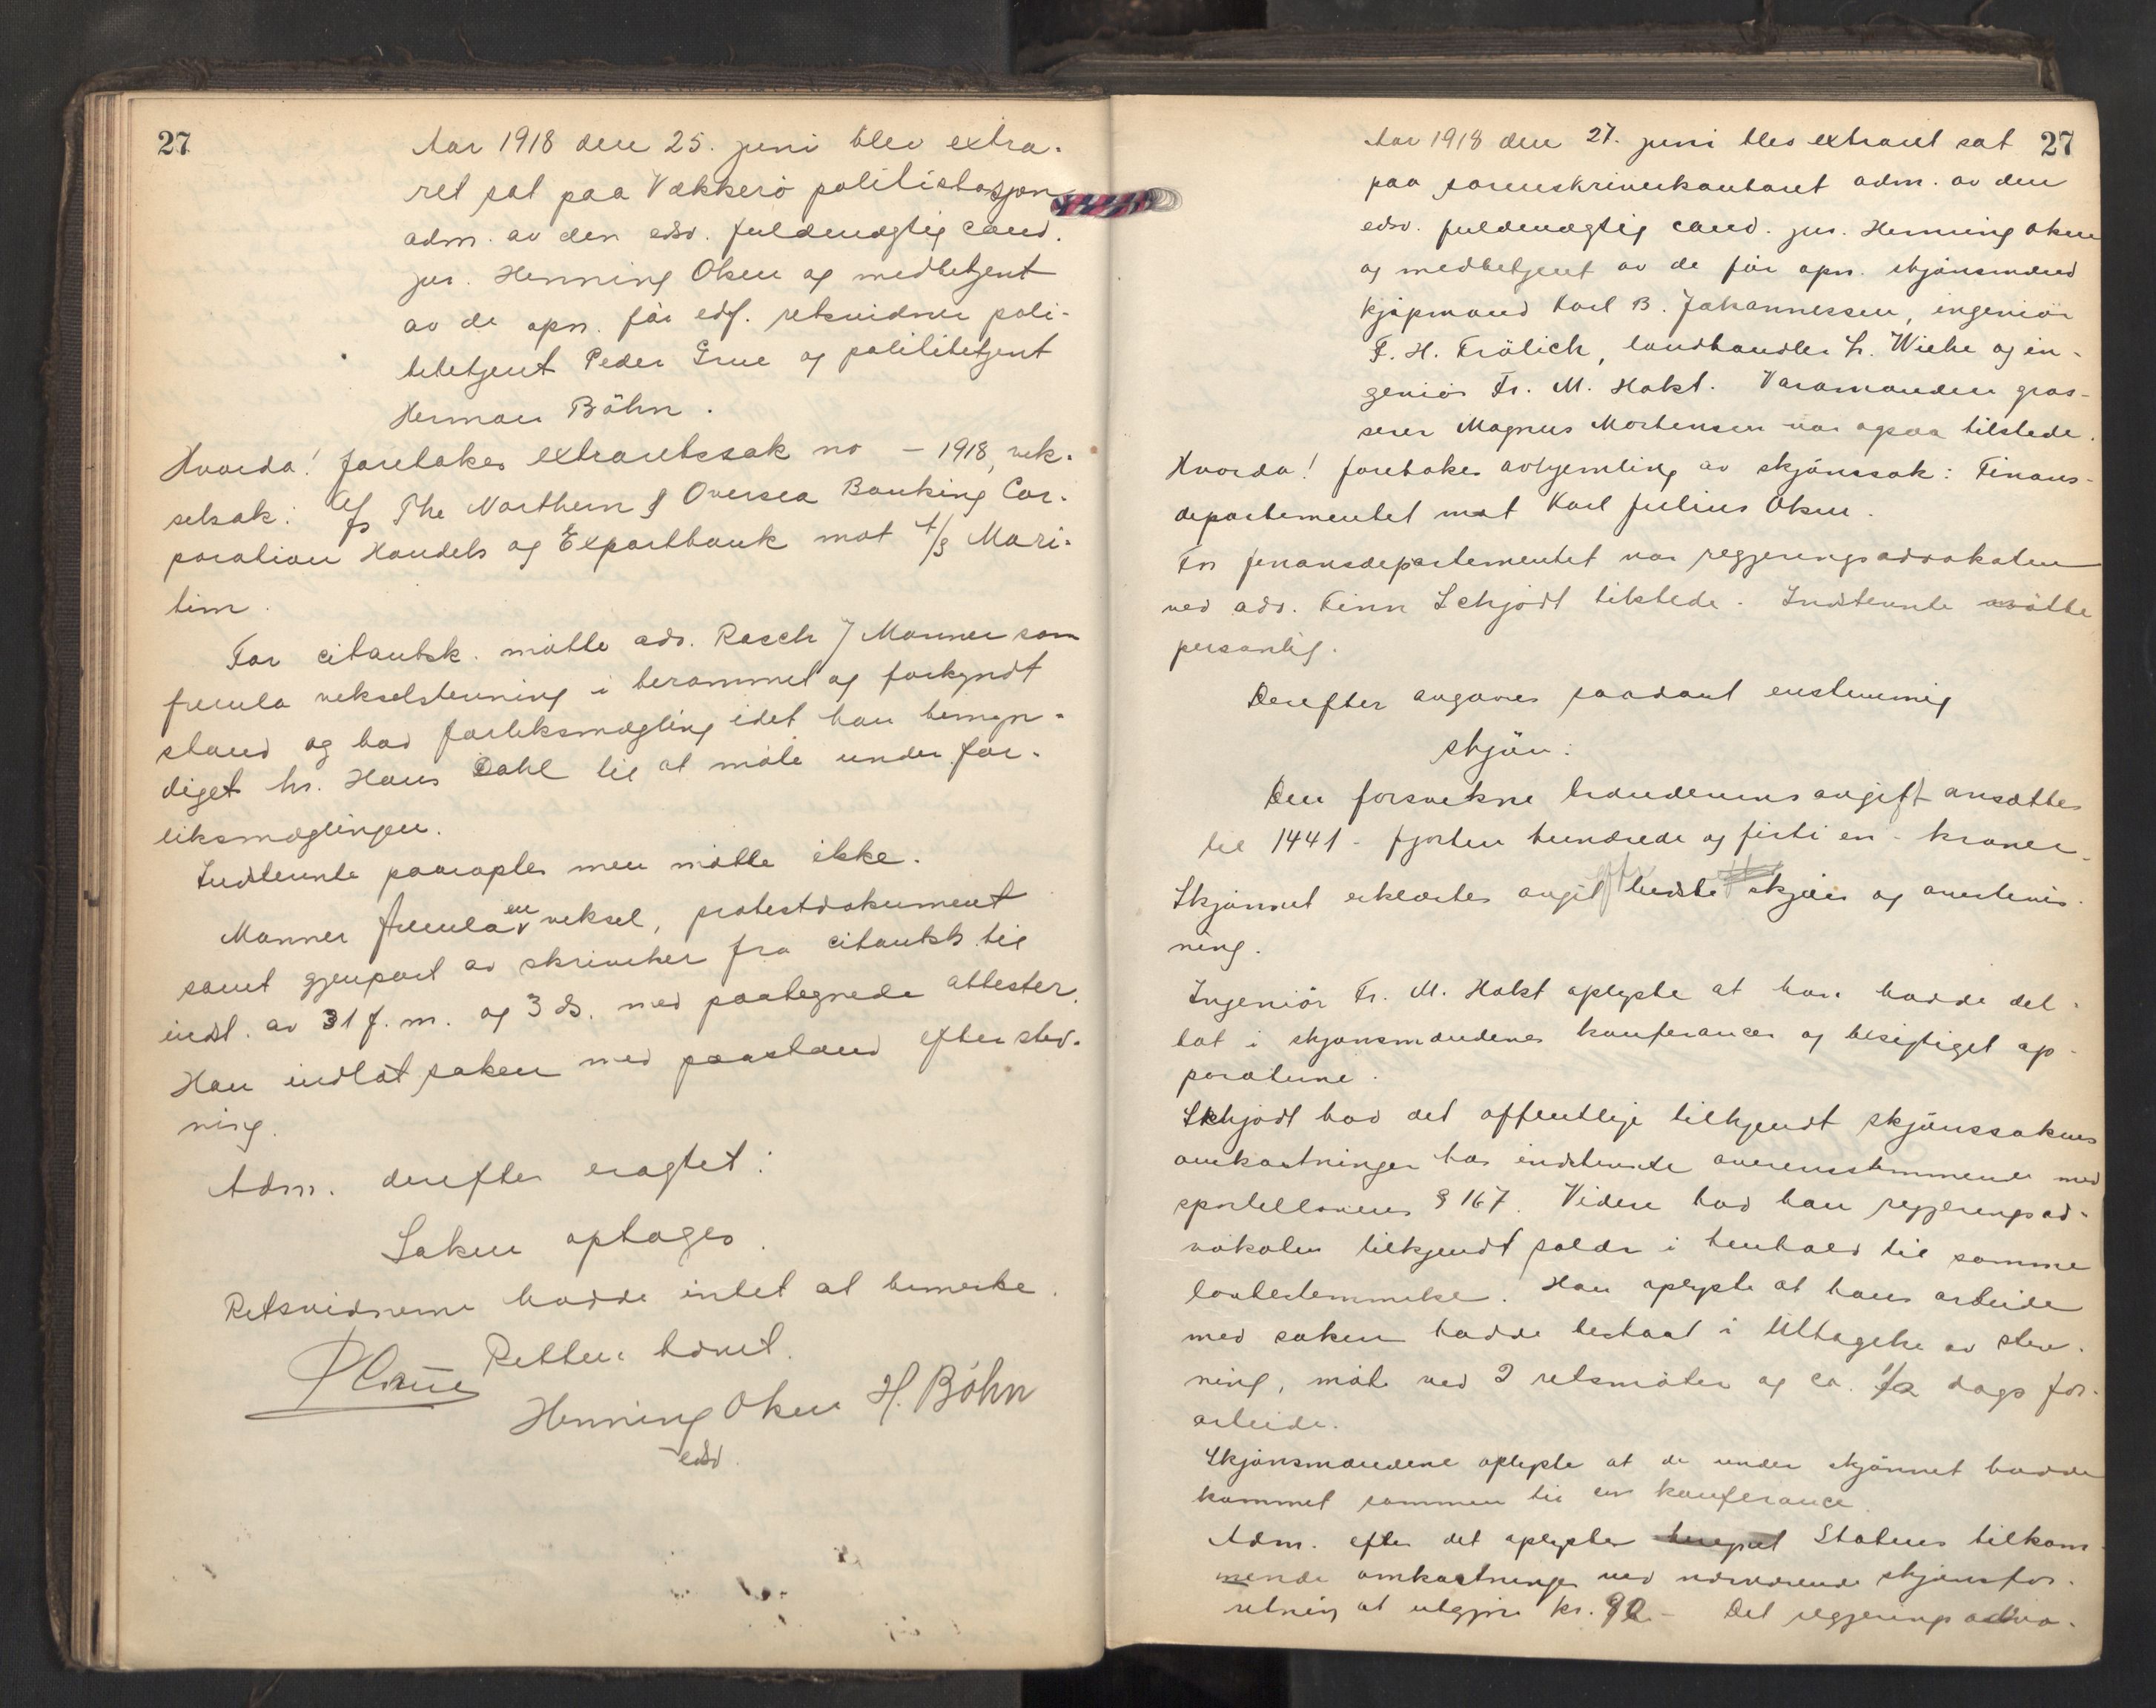 27
Aar 1918 den 25. juni blev extra-
ret sat paa Vækkerö politistasjon
adm. av den edsv. fuldmægtig cand.
jur. Henning Olsen og medbetjent
av de opn. før edf. retsvidner poli-
tibetjent Peder Grue og politibetjent
Herman Böhn.
Hvorda! foretokes extraretssak no – 1918, vek-
selsak: A/s The Northern & Oversea Banking Cor-
poration Handels og Exportbank mot A/s Mari-
tim.
For citantsk. møtte adv. Rasch Manner som
fremla vekselstevning i berammet og forkyndt
stand og bad forliksmægling idet han bemyn-
diget hr. Hans Dahl til at møte under for-
liksmæglingen.
Indstevnte paaroptes men møtte ikke.
Manner fremla en veksel, protestdokument
samt gjenpart av skrivelser fra citantsk. til
indst. av 31 f. m. og 3 ds. med paategnede attester.
Han indlot saken med paastand efter stev-
ning.
Adm. derefter eragtet:
Saken optages.
Retsvidnerne hadde intet at bemerke.
Retten hævet.
PGrue
Henning Olsen H. Böhn
edsv.
27
Aar 1918 den 27. juni blev extraret sat
paa sorenskriverkontoret adm. av den
edsv. fuldmægtig cand. jur. Henning Olsen
og medbetjent av de før opn. skjønsmænd
kjøpmand Karl B. Johannessen, ingeniör
F. H. Frölich, landhandler L. Wiche og in-
geniör Fr. M. Holst. Varamanden gros-
serer Magnus Mortensen var ogsaa tilstede.
Hvorda! foretokes avhjemling av skjønssak: Finans-
departementet mot Karl Julius Olsen.
For finansdepartementet var regjeringsadvokaten
ved adv. Finn Schjødt tilstede. Indstevnte møtte
personlig.
Derefter avgaves saadant enstemmig
skjøn:
Den forsvekne brænderiets avgift ansættes
til 1441 - fjorten hundrede og firti en - kroner.
Skjønnet erklærtes avgit efter bedste skjøn og overbevis-
ning.
Ingeniör Fr. M. Holst oplyste at han hadde del-
tat i skjønsmændenes konferancer og besigtiget ap-
paraterne.
Schjødt bad det offentlige tilkjendt skjønssakens
omkostninger hos indstevnte overensstemmende med
sportellovens § 167. Videre bad han regjeringsad-
vokaten tilkjendt salær i henhold til samme
lovbestemmelse. Han oplyste at hans arbeide
med saken hadde bestaat i Uttagelse av stev-
ning, møte ved 2 retsmøter og ca. 1/2 dags for-
arbeide.
Skjønsmændene oplyste at de under skjønnet hadde
kommet sammen til en konferance.
Adm. efter det oplyste beregnet Statens tilkom-
mende omkostninger ved nærværende skjønsfor-
retning at utgjøre kr. 92.- Det regjeringsadvo-